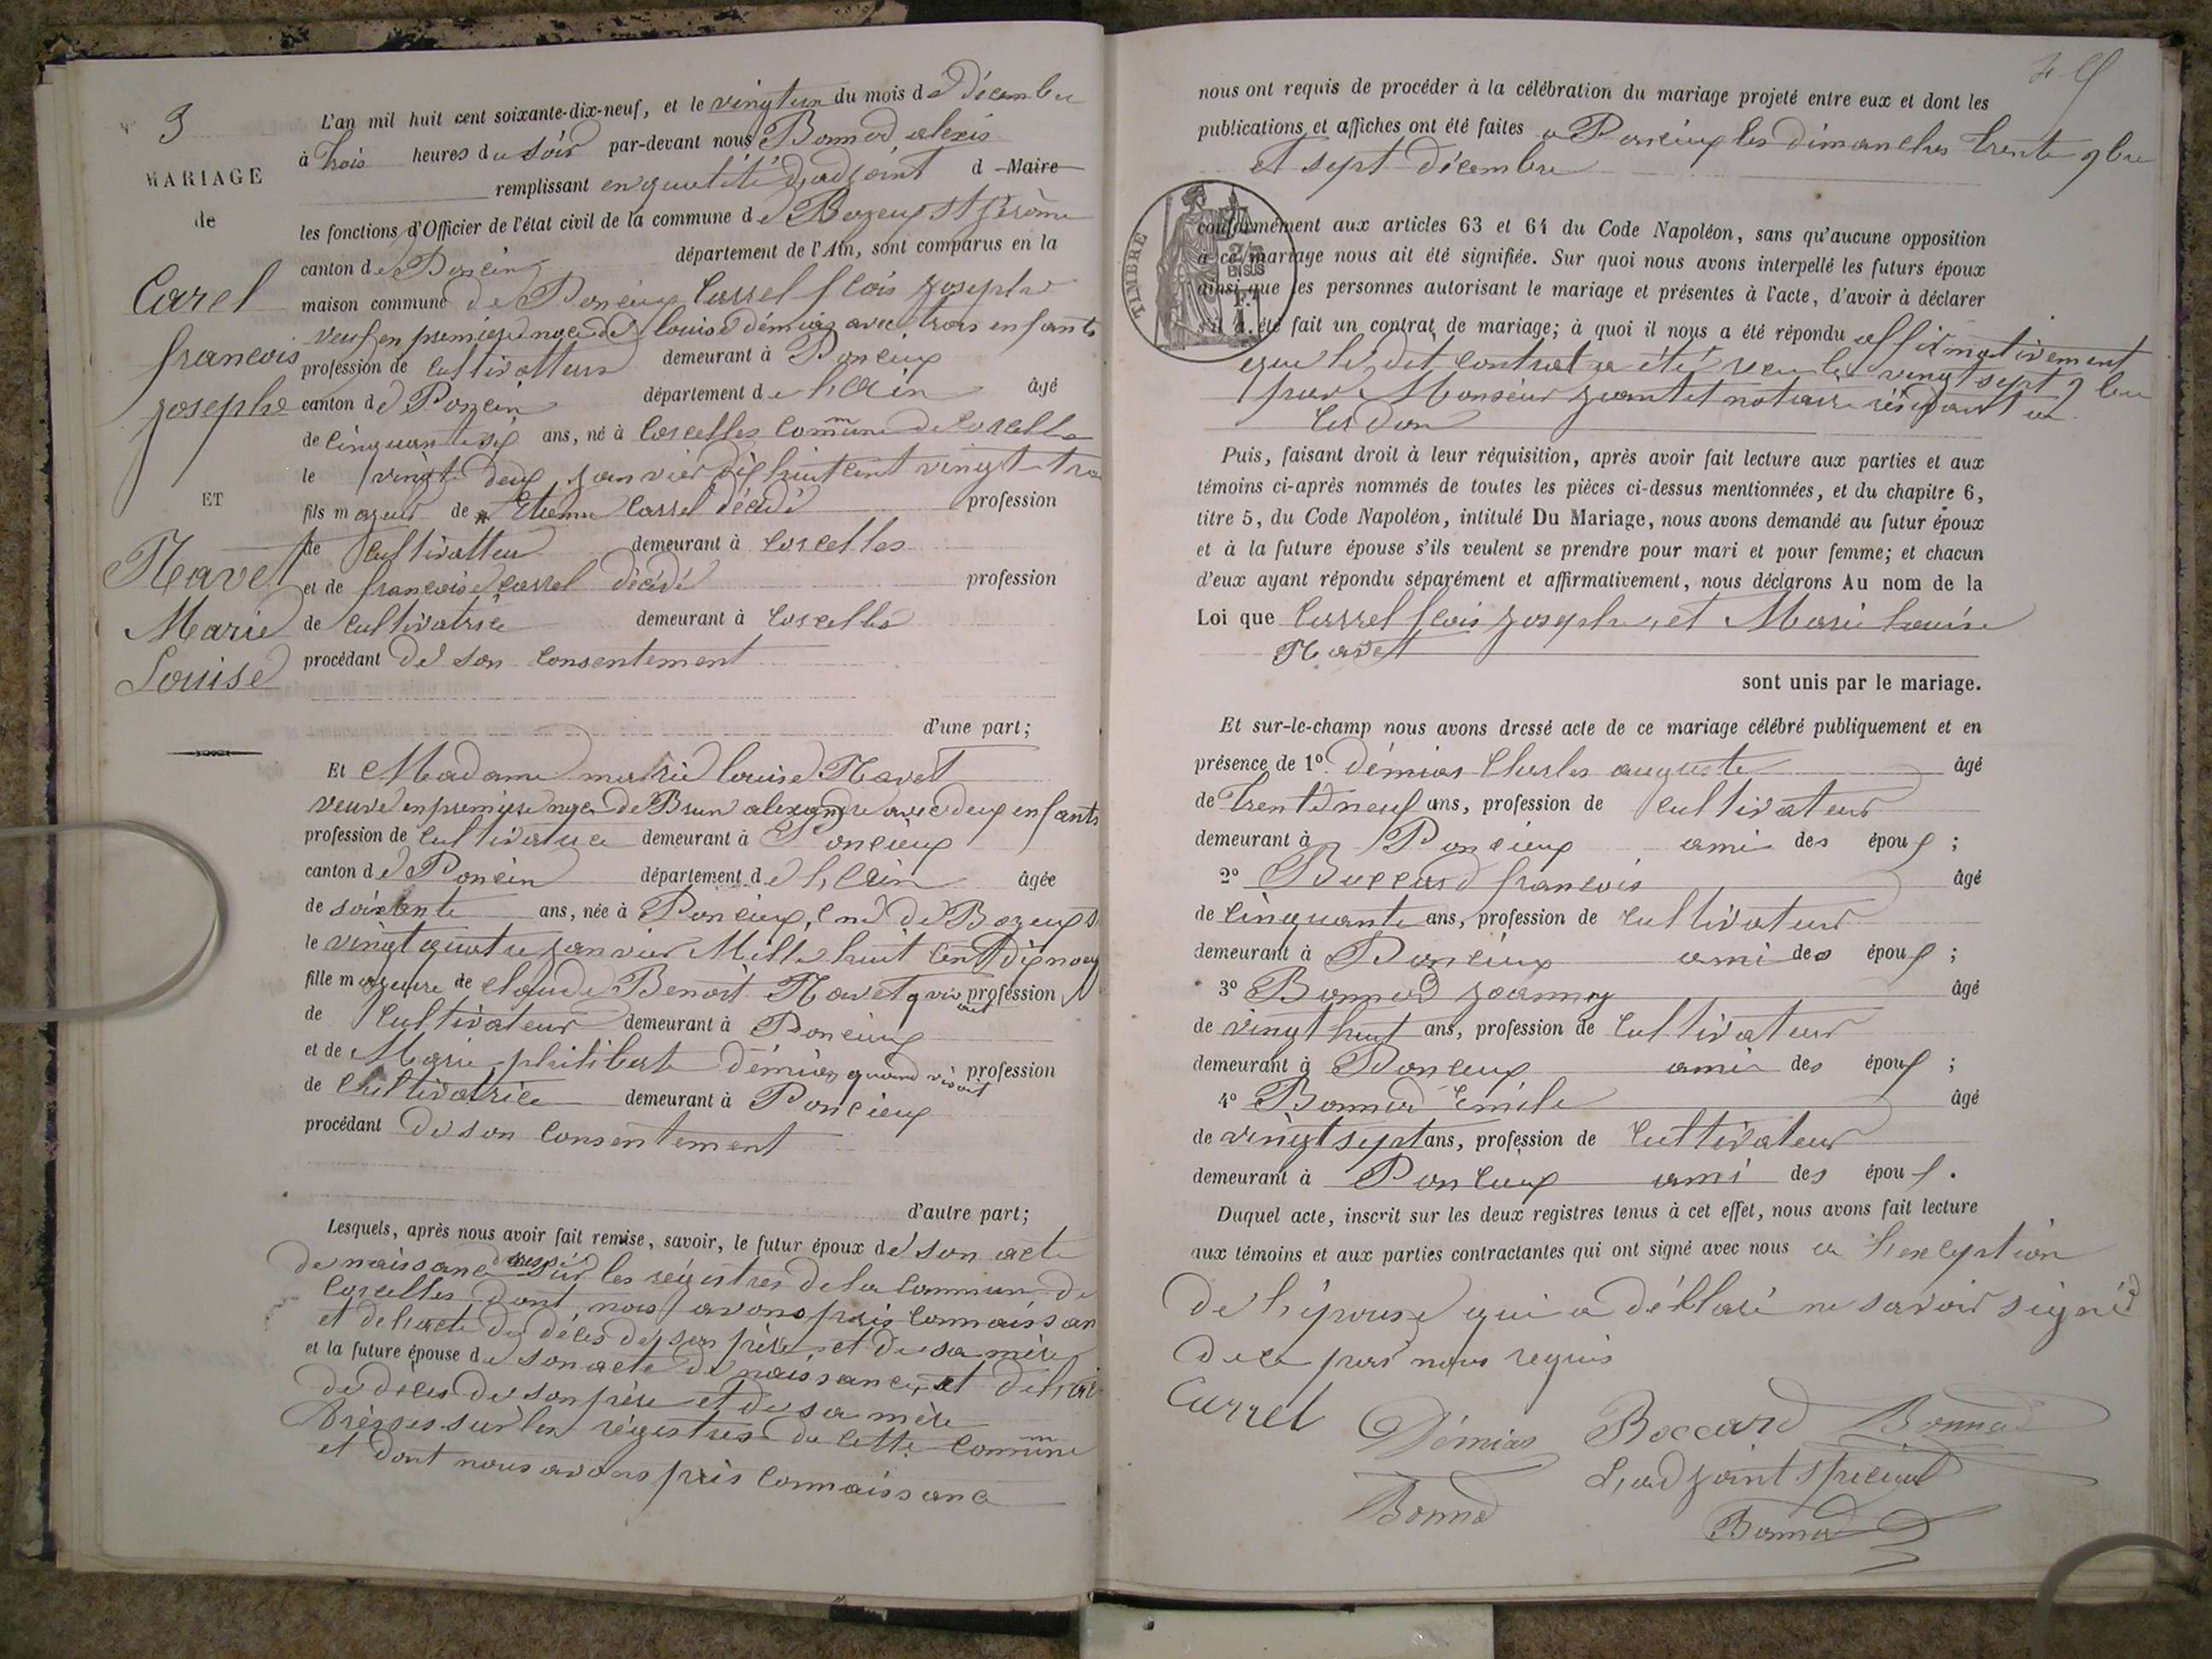 N° 3
MARIAGE
de
Carel
francois
Josephe
ET
Navet
Marie
Louise
L'an mil huit cent soixante-dix-neuf, et le vingt un du mois de décembre
à trois heures du soir par-devant nous Bonnod alexis
remplissant en qualité d'adjoint d Maire
les fonctions d'Officier de l'état civil de la commune de Bozeux St Jérôme
canton de Poncin département de l'Ain, sont comparus en la
maison commune de Poncieux Carrel fcois Josephe
veuf en premiere noce de louise démias avec trois enfants
profession de cultivatteur demeurant à Poncieux
canton de Poncin département de l'Ain âgé
de cinquante six ans, né à Corcelles Commune de Corcelles
le vingt deux janvier dix huit cent vingt-tro
fils majeur de Etienne Carrel décédé profession
de Cultivatteur demeurant à Corcelles
et de francoise Carrel décédé profession
de cultivatrice demeurant à Corcelles
procédant de son consentement
d'une part;
Et Madame marie louise Navet
veuve en premiere noce de Brun alexandre avec deux enfants
profession de cultivatrice demeurant à Poncieux
canton de Poncin département de l'Ain âgée
de soixante ans, née à Poncieux, Cne de Bozeux S
le vingt quatre janvier Mille huit Cent dix neuf
fille majeure de claude Benoit Navet q vivait profession
de Cultivateur demeurant à Poncieux
et de Marie philiberte démias quand vivait profession
de Cultivatrice demeurant à Poncieux
procédant de son consentement
d'autre part;
Lesquels, après nous avoir fait remise, savoir, le futur époux de son acte
de naissance dressé sur les régistres de la Commune de
Corcelles dont nous avons pris connaissan
et de l'acte de déces de son père et de sa mère
et la future épouse de son acte de naissance, et de l'act
de déces de son père et de sa mère
drésses sur les régistres de cette Commune
et dont nous avons pris connaissance
nous ont requis de procéder à la célébration du mariage projeté entre eux et dont les
publications et affiches ont été faites a Poncieux les dimanches trente 9bre
et sept décembre
TIMBRE
conformément aux articles 63 et 64 du Code Napoléon, sans qu'aucune opposition
à ce mariage nous ait été signifiée. Sur quoi nous avons interpellé les futurs époux
ainsi que les personnes autorisant le mariage et présentes à l'acte, d'avoir à déclarer
s'il a été fait un contrat de mariage; à quoi il nous a été répondu affirmativement
que le dit contrat a été recu le vingt sept 9bre
par Monsieur Jantet notaire résidant a
Cerdon
Puis, faisant droit à leur réquisition, après avoir fait lecture aux parties et aux
témoins ci-après nommés de toutes les pièces ci-dessus mentionnées, et du chapitre 6,
titre 5, du Code Napoléon, intitulé Du Mariage, nous avons demandé au futur époux
et à la future épouse s'ils veulent se prendre pour mari et pour femme; et chacun
d'eux ayant répondu séparément et affirmativement, nous déclarons Au nom de la
Loi que Carrel fcois Josephe, et Marie louise
Navet
sont unis par le mariage.
Et sur-le-champ nous avons dressé acte de ce mariage célébré publiquement et en
présence de 1° démias Charles auguste âgé
de trente neuf ans, profession de cultivateur
demeurant à Poncieux ami des époux;
2° Buccard francois âgé
de cinquante ans, profession de cultivateur
demeurant à Poncieux ami des époux;
3° Bonnod Joanny âgé
de vingt huit ans, profession de cultivateur
demeurant à Poncieux ami des époux;
4° Bonnod Emile âgé
de vingt sept ans, profession de Cultivateur
demeurant à Poncieux ami des époux.
Duquel acte, inscrit sur les deux registres tenus à cet effet, nous avons fait lecture
aux témoins et aux parties contractantes qui ont signé avec nous a l'exception
de l'épouse qui a déklaré ne savoir signé
de ce pars nous requis
Carrel Démias Boccard Bonnod
Bonnod L'adjoint spécial
Bonnod